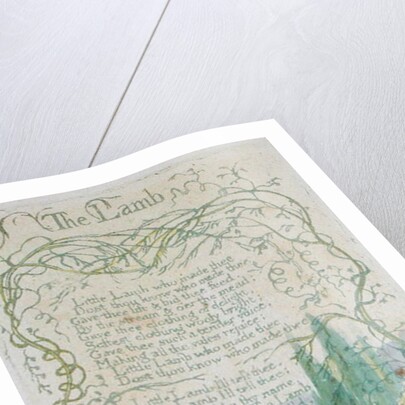 The Lamb
Little Lamb who made thee
Dost thou know who made thee
Gave thee life & bid thee feed.
By the stream & o'er the mead;
Gave thee clothing of delight,
Softest clothing wooly bright;
Gave thee such a tender voice,
Making all the vales rejoice:
Little Lamb who made thee
Dost thou know who made thee
Little Lamb I'll tell thee,
Little Lamb I'll tell thee;